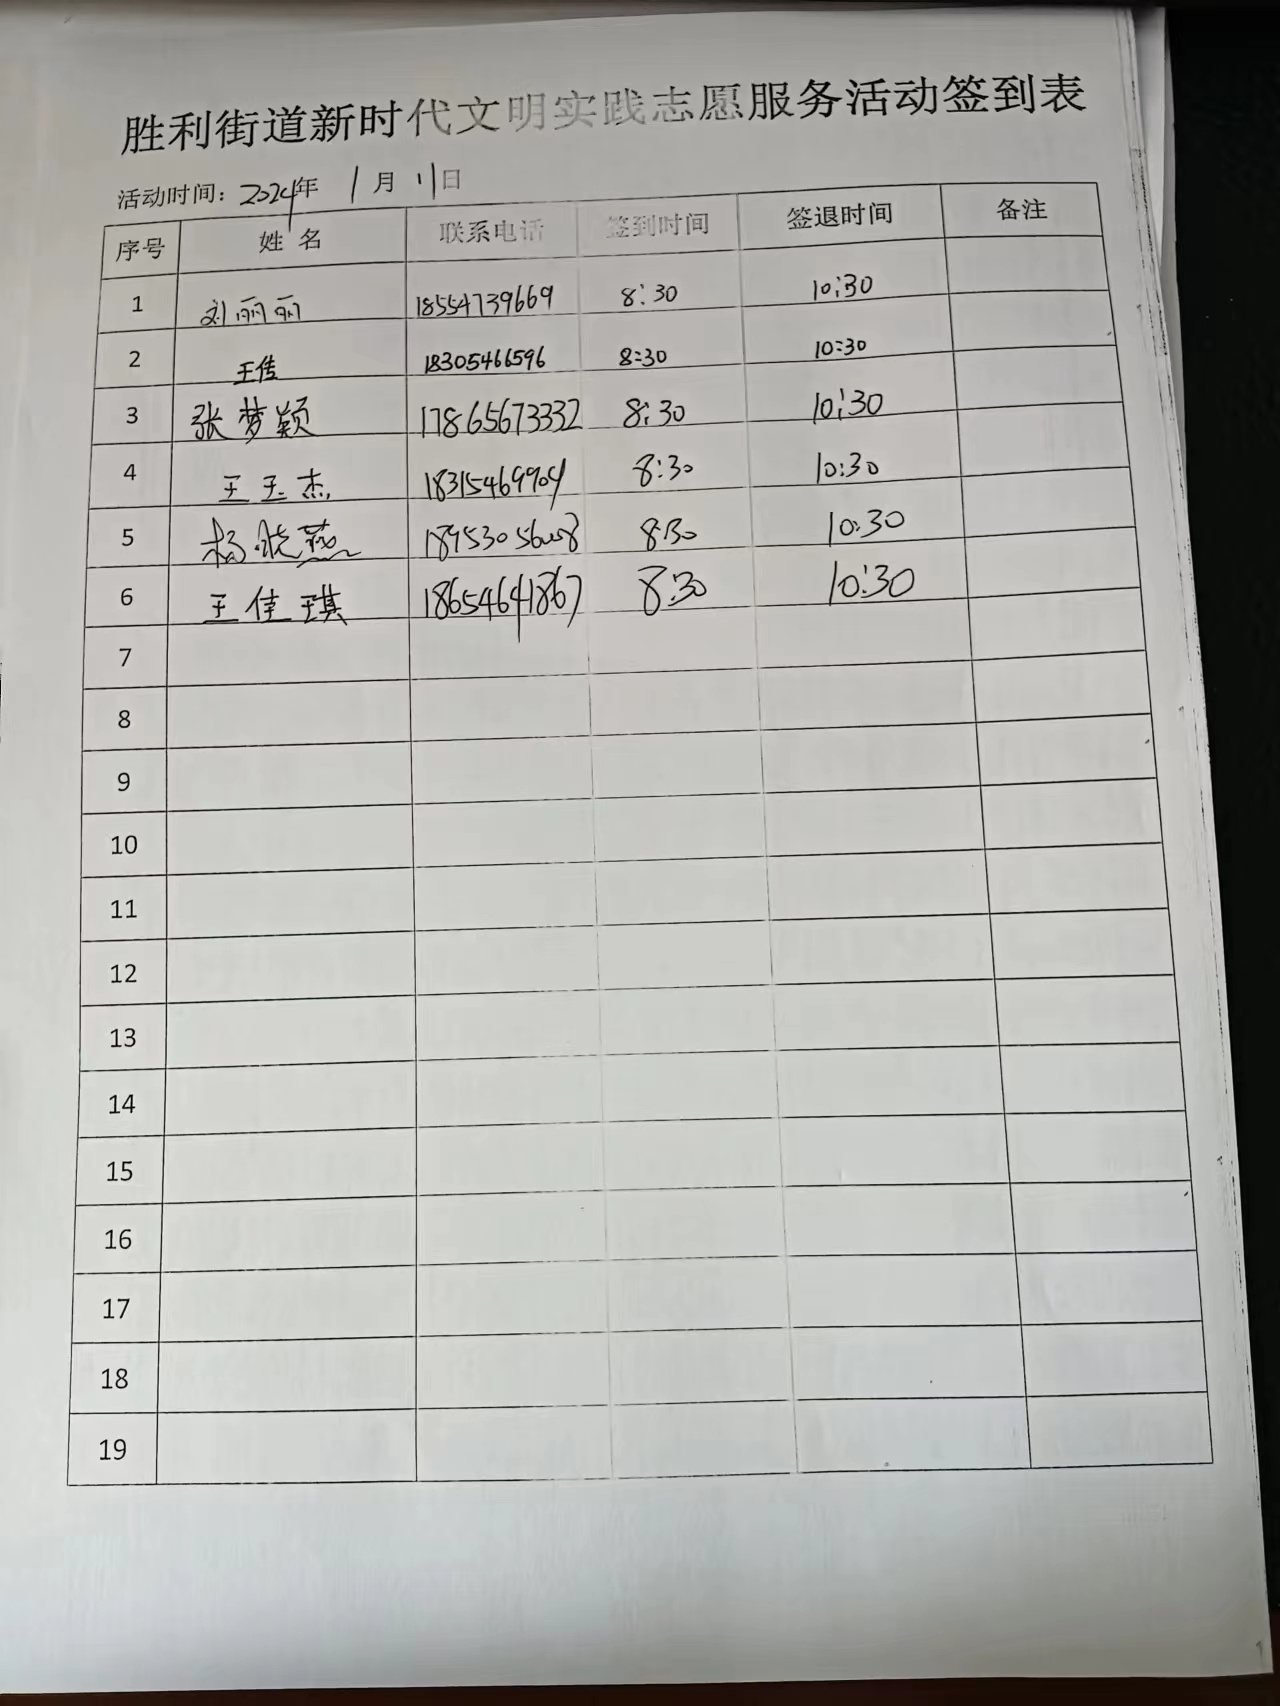 胜利街道新时代文明实践志愿服务活动签到表
活动时间：2024年 1月 11日
序号 姓名 联系电话 签到时间 签退时间 备注
1 刘丽丽 18554739669 8:30 10:30
2 王传 18305466596 8:30 10:30
3 张梦颖 17865673332 8:30 10:30
4 王玉杰 18315469904 8:30 10:30
5 杨晓燕 8:30 10:30
6 王佳琪 18654641867 8:30 10:30
7
8
9
10
11
12
13
14
15
16
17
18
19